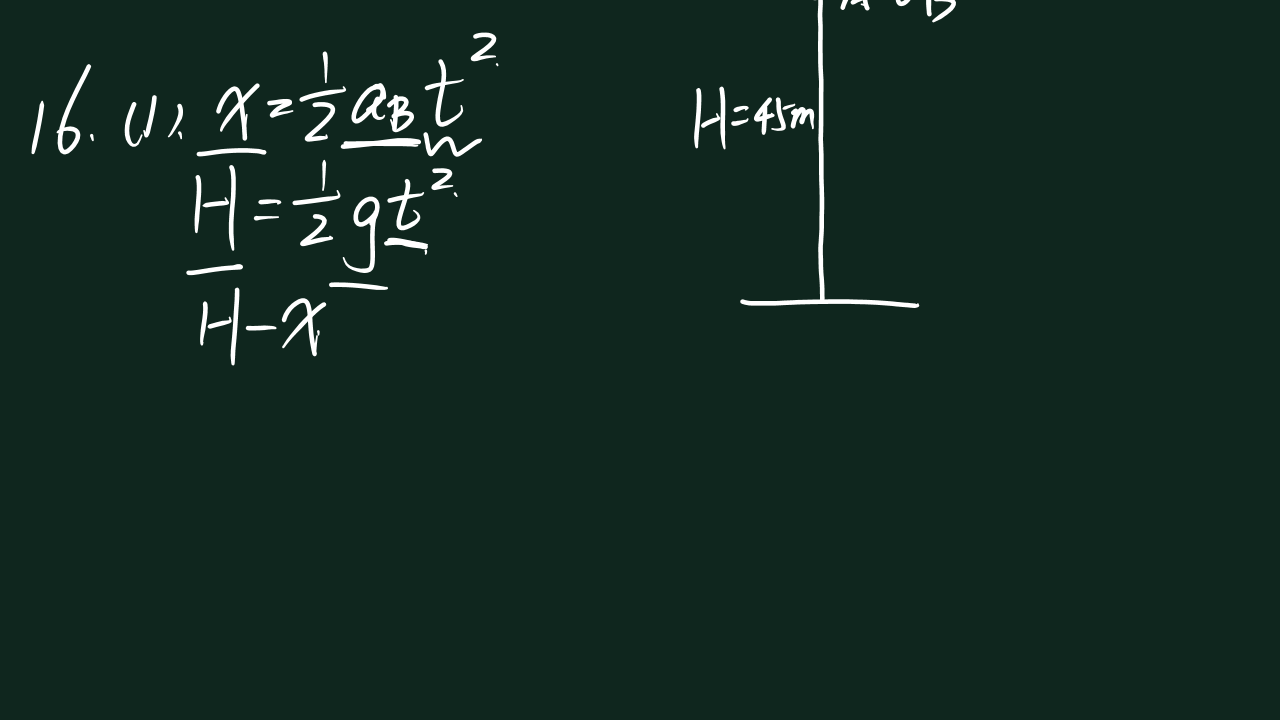 16. (1). x = 1/2 a_B t^2.
H = 1/2 g t^2.
H - x
H = 45m